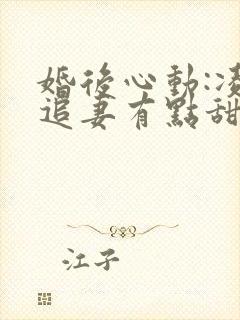 婚後心動:凌
追妻有點甜
江子